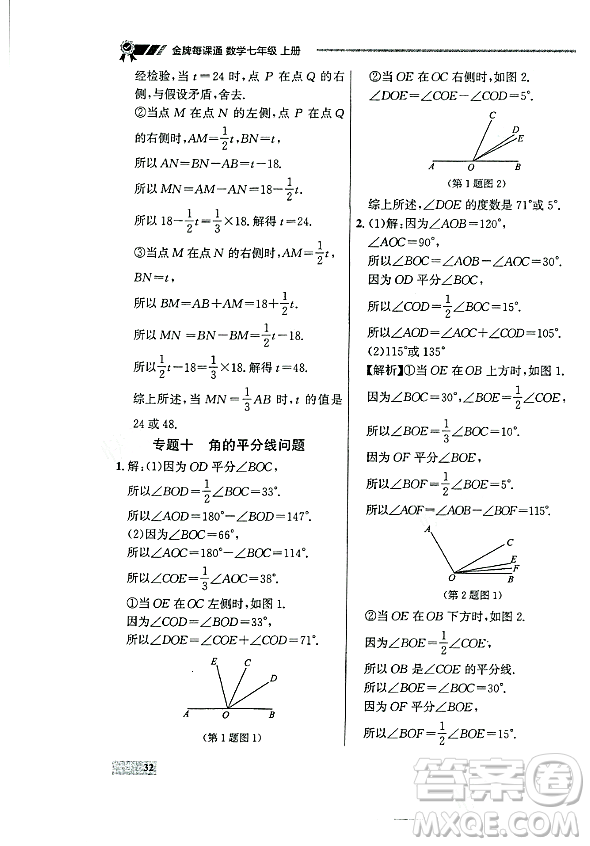 金牌每课通 数学七年级 上册
经检验,当 t=24 时,点 P 在点 Q 的右
侧,与假设矛盾,舍去.
②当点 M 在点 N 的左侧,点 P 在点 Q
的右侧时,AM=1/2 t,BN=t,
所以 AN=BN−BM=t−18.
所以 MN=AM−AN=18−1/2 t.
所以 18−1/2 t=1/3×18.解得 t=24.
③当点 M 在点 N 的右侧时,AM=1/2 t,
BN=t,
所以 BM=AM−AB=18+1/2 t.
所以 MN=BN−BM=1/2 t−18.
所以 1/2 t−18=1/3×18.解得 t=48.
综上所述,当 MN=1/3 AB 时,t 的值是
24 或 48.
专题十 角的平分线问题
1.解:(1)因为 OD 平分∠BOC,
所以∠BOD=1/2∠BOC=33°.
所以∠AOD=180°−∠BOD=147°.
(2)因为∠BOC=66°,
所以∠AOC=180°−∠BOC=114°.
所以∠COE=1/3∠AOC=38°.
①当 OE 在 OC 左侧时,如图 1.
因为∠COD=∠BOD=33°,
所以∠DOE=∠COE+∠COD=71°.
E C D
A O B
(第 1 题图 1)
32
②当 OE 在 OC 右侧时,如图 2.
∠DOE=∠COE−∠COD=5°.
C D E
A O B
(第 1 题图 2)
综上所述,∠DOE 的度数是 71°或 5°.
2.(1)解:因为∠AOB=120°,
∠AOC=90°,
所以∠BOC=∠AOB−∠AOC=30°.
因为 OD 平分∠BOC,
所以∠COD=1/2∠BOC=15°.
所以∠AOD=∠AOC+∠COD=105°.
(2)115°或 135°
【解析】①当 OE 在 OB 上方时,如图 1.
因为∠BOE=1/2∠COE,
所以∠BOE=1/3∠BOC=10°.
因为 OF 平分∠BOE,
所以∠BOF=1/2∠BOE=5°.
所以∠AOF=∠AOB−∠BOF=115°.
A C E F
O B
(第 2 题图 1)
②当 OE 在 OB 下方时,如图 2.
因为∠BOE=1/2∠COE,
所以 OB 是∠COE 的平分线.
所以∠BOE=∠BOC=30°.
所以∠BOF=1/2∠BOE=15°.
作业答案